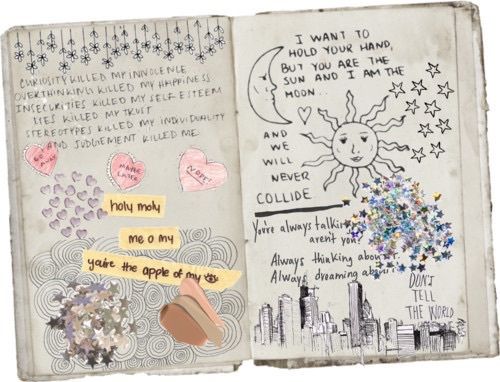 CURIOSITY KILLED MY INNOCENCE
OVERTHINKING KILLED MY HAPPINESS
INSECURITIES KILLED MY SELF ESTEEM
LIES KILLED MY TRUST
STEREOTYPES KILLED MY INDIVIDUALITY
AND JUDGEMENT KILLED ME.
GO
AWAY
MAYBE
LATER
NOPE!
holy moly
me o my
you're the apple of my
I WANT TO
HOLD YOUR HAND,
BUT YOU ARE THE
SUN AND I AM THE
MOON...
AND
WE
WILL
NEVER
COLLIDE
You're always talking
aren't you?
Always thinking about
Always dreaming about
DON'T
TELL
THE WORLD